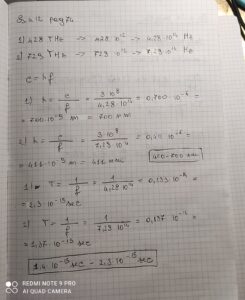 1) 428 THz -> 428·10¹² -> 4,28·10¹⁴ Hz
2) 729 THz -> 729·10¹² -> 7,29·10¹⁴ Hz
c = λf
1) λ = c/f = 3·10⁸/4,28·10¹⁴ = 0,700·10⁻⁶ =
= 700·10⁻⁹ m = 700 nm
2) λ = c/f = 3·10⁸/7,29·10¹⁴ = 0,411·10⁻⁶ =
= 411·10⁻⁹ m = 411 nm
400-700 nm
T = 1/f = 1/4,28·10¹⁴
= 2,3·10⁻¹⁵ sec
2) T = 1/f = 1/7,29·10¹⁴ = 0,137·10⁻¹⁴ =
= 1,37·10⁻¹⁵ sec
1,4·10⁻¹⁵ sec - 2,3·10⁻¹⁵ sec
REDMI NOTE 9 PRO
AI QUAD CAMERA